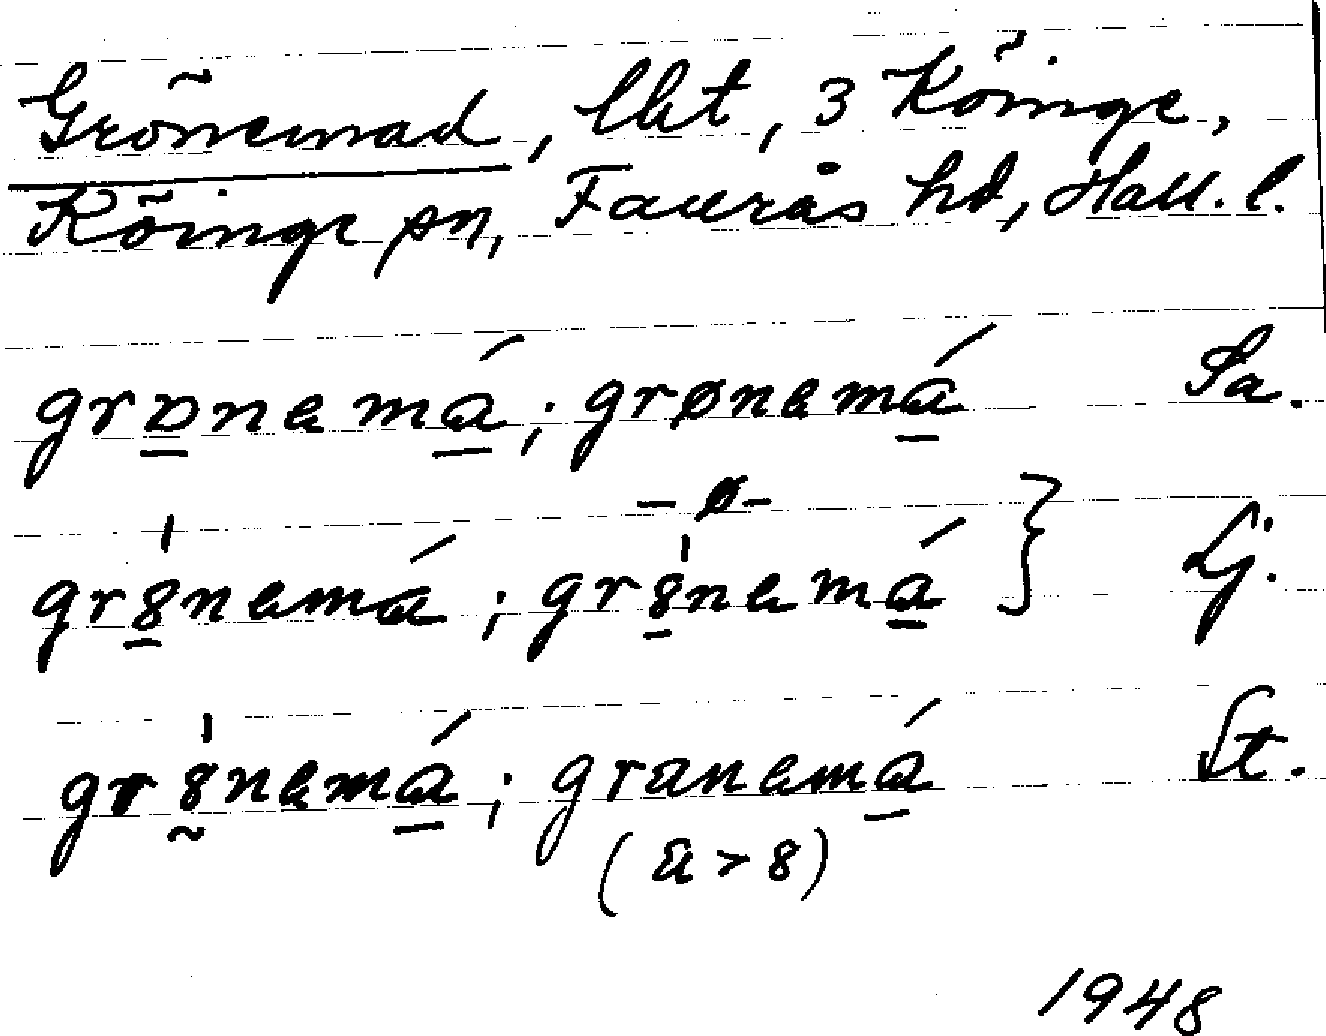 Grönemad, lht, 3 Köinge,
Köinge sn, Faurås hd, Hall. l.
grɒnemá; grønemá Sa.
-ø-
gr8nemá; gr8nemá } Lj.
gr8nemá; grɑnemá St.
(a > 8)
1948